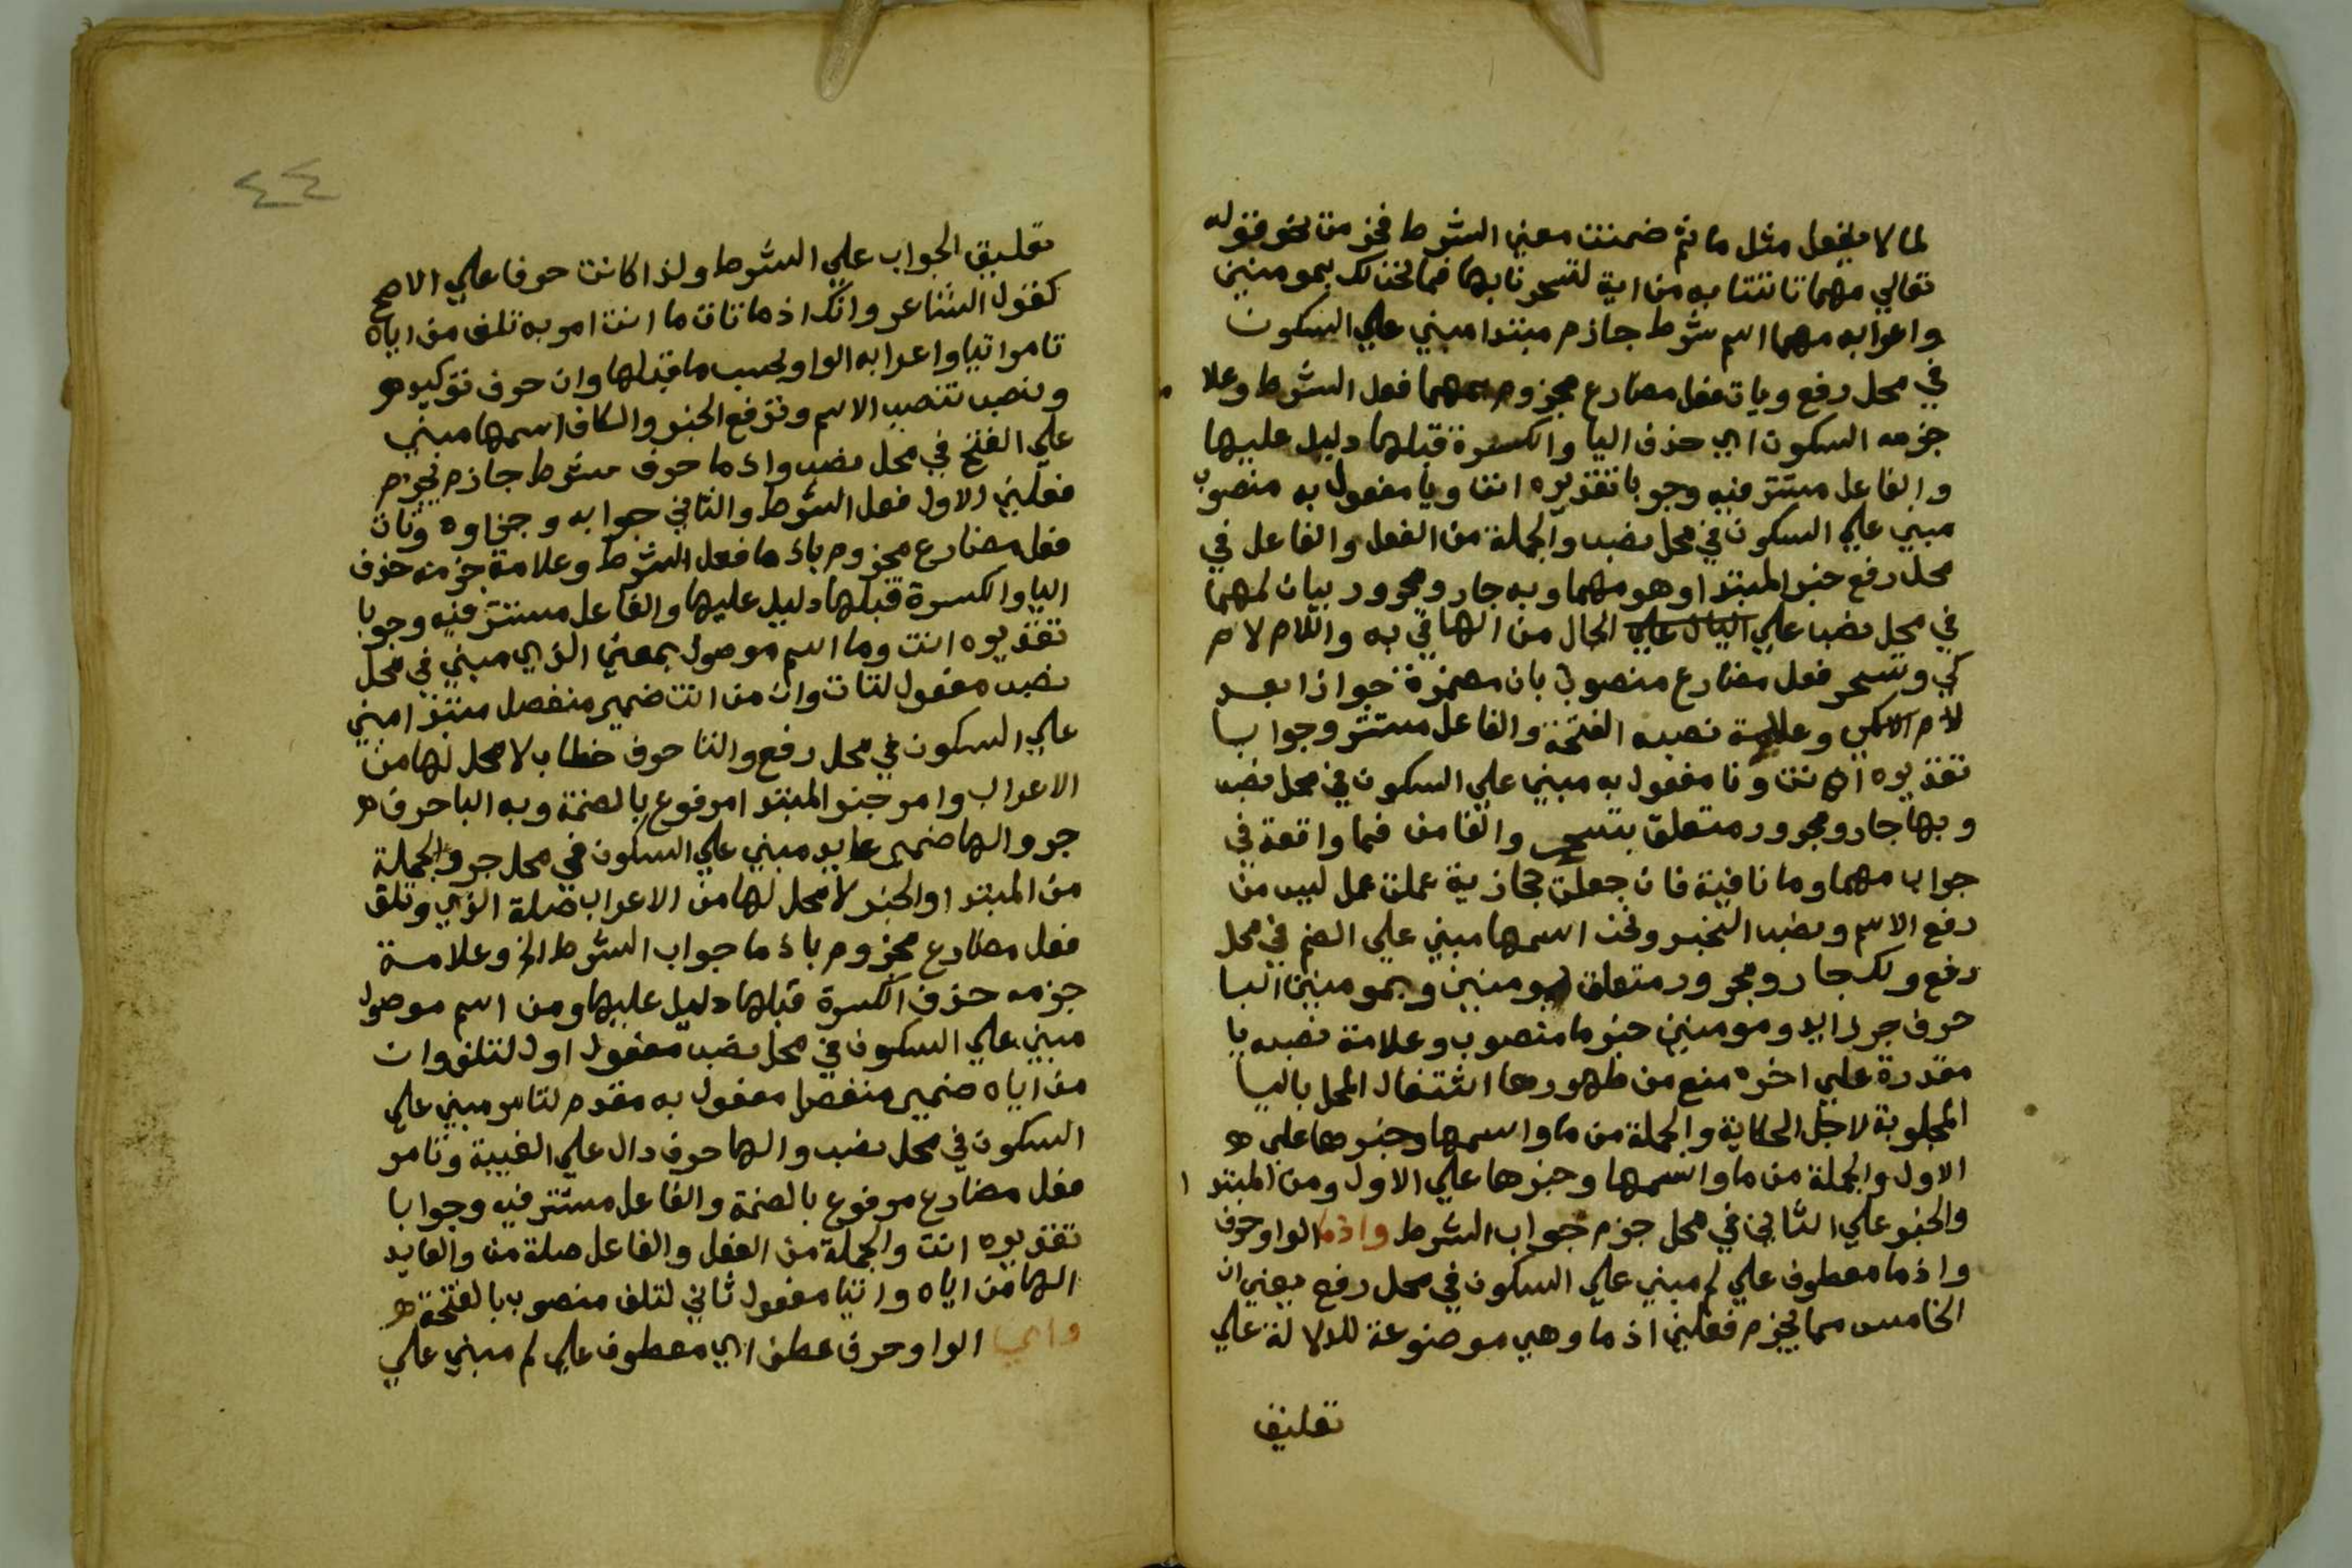 لما لا يفعل مثل ما ثم ضمنت معني الشرط فجزمت نحو قوله
تعالي مهما تاتنا به من اية لتسحرنا بها فما نحن لك بمومنين
واعرابه مهما اسم شرط جازم مبتدا مبني علي السكون
في محل رفع ويات فعل مضارع مجزوم بمهما فعل الشرط وعلا
جزمه السكون اي حذف اليا والكسرة قبلها دليل عليها
والفاعل مستتر فيه وجوبا تقديره انت ويا مفعول به منصوب
مبني علي السكون في محل نصب والجملة من الفعل والفاعل في
محل رفع خبر المبتدا وهو مهما وبه جار ومجرور بيان لمهما
في محل نصب علي البيان علي الحال من الها في به واللام لام
كي وتسحر فعل مضارع منصوب بان مضمرة جوازا بعد
لام الكي وعلامة نصبه الفتحة والفاعل مستتر وجوابا
تقديره انت ونا مفعول به مبني علي السكون في محل نصب
وبها جار ومجرور متعلق بتسحر والفا من فما واقعة في
جواب مهما وما نافية فان جعلت حجازية عملت عمل ليس من
رفع الاسم ونصب الخبر ونحن اسمها مبني علي الضم في محل
رفع ولك جار ومجرور متعلق بمومنين وبمومنين البا
حرف جر زايد ومومنين خبر ما منصوب وعلامة نصبه يا
مقدرة علي اخره منع من ظهورها اشتغال المحل باليا
المجلوبة لاجل الحكاية والجملة من ما واسمها وخبرها علي
الاول والجملة من ما واسمها وخبرها علي الاول ومن المبتدا
والخبر علي الثاني في محل جزم جواب الشرط واذما الواو حرف
واذما معطوف علي لم مبني علي السكون في محل رفع يعني ان
الخامس مما يجزم فعلين اذما وهي موضوعة للدلالة علي
تعليق
٤٤
تعليق الجواب علي الشرط ولذا كانت حرفا علي الاصح
كقول الشاعر وانك اذما تات ما انت امر به تلف من اياه
تامر اتيا واعرابه الواو بحسب ما قبلها وان حرف توكيد
ونصب تنصب الاسم وترفع الخبر والكاف اسمها مبني
علي الفتح في محل نصب واذما حرف شرط جازم يجزم
فعلين الاول فعل الشرط والثاني جوابه وجزاوه وتات
فعل مضارع مجزوم باذما فعل الشرط وعلامة جزمه حذف
اليا والكسرة قبلها دليل عليها والفاعل مستتر فيه وجوبا
تقديره انت وما اسم موصول بمعني الذي مبني في محل
نصب مفعول لتات وان من انت ضمير منفصل مبتدا مبني
علي السكون في محل رفع والتا حرف خطاب لا محل لها من
الاعراب وامر خبر المبتدا مرفوع بالضمة وبه البا حرف
جر والها ضمير عايد مبني علي السكون في محل جر والجملة
من المبتدا والخبر لا محل لها من الاعراب صلة الذي وتلق
فعل مضارع مجزوم باذما جواب الشرط الخ وعلامة
جزمه حذف الكسرة قبلها دليل عليها ومن اسم موصول
مبني علي السكون في محل نصب مفعول اول لتلف وان
من اياه ضمير منفصل مفعول به مقدم لتامر مبني علي
السكون في محل نصب والها حرف دال علي الغيبة وتامر
فعل مضارع مرفوع بالضمة والفاعل مستتر فيه وجوابا
تقديره انت والجملة من الفعل والفاعل صلة من والعايد
الها من اياه واتيا مفعول ثاني لتلف منصوب بالفتحة
واي الواو حرف عطف اي معطوف علي لم مبني علي